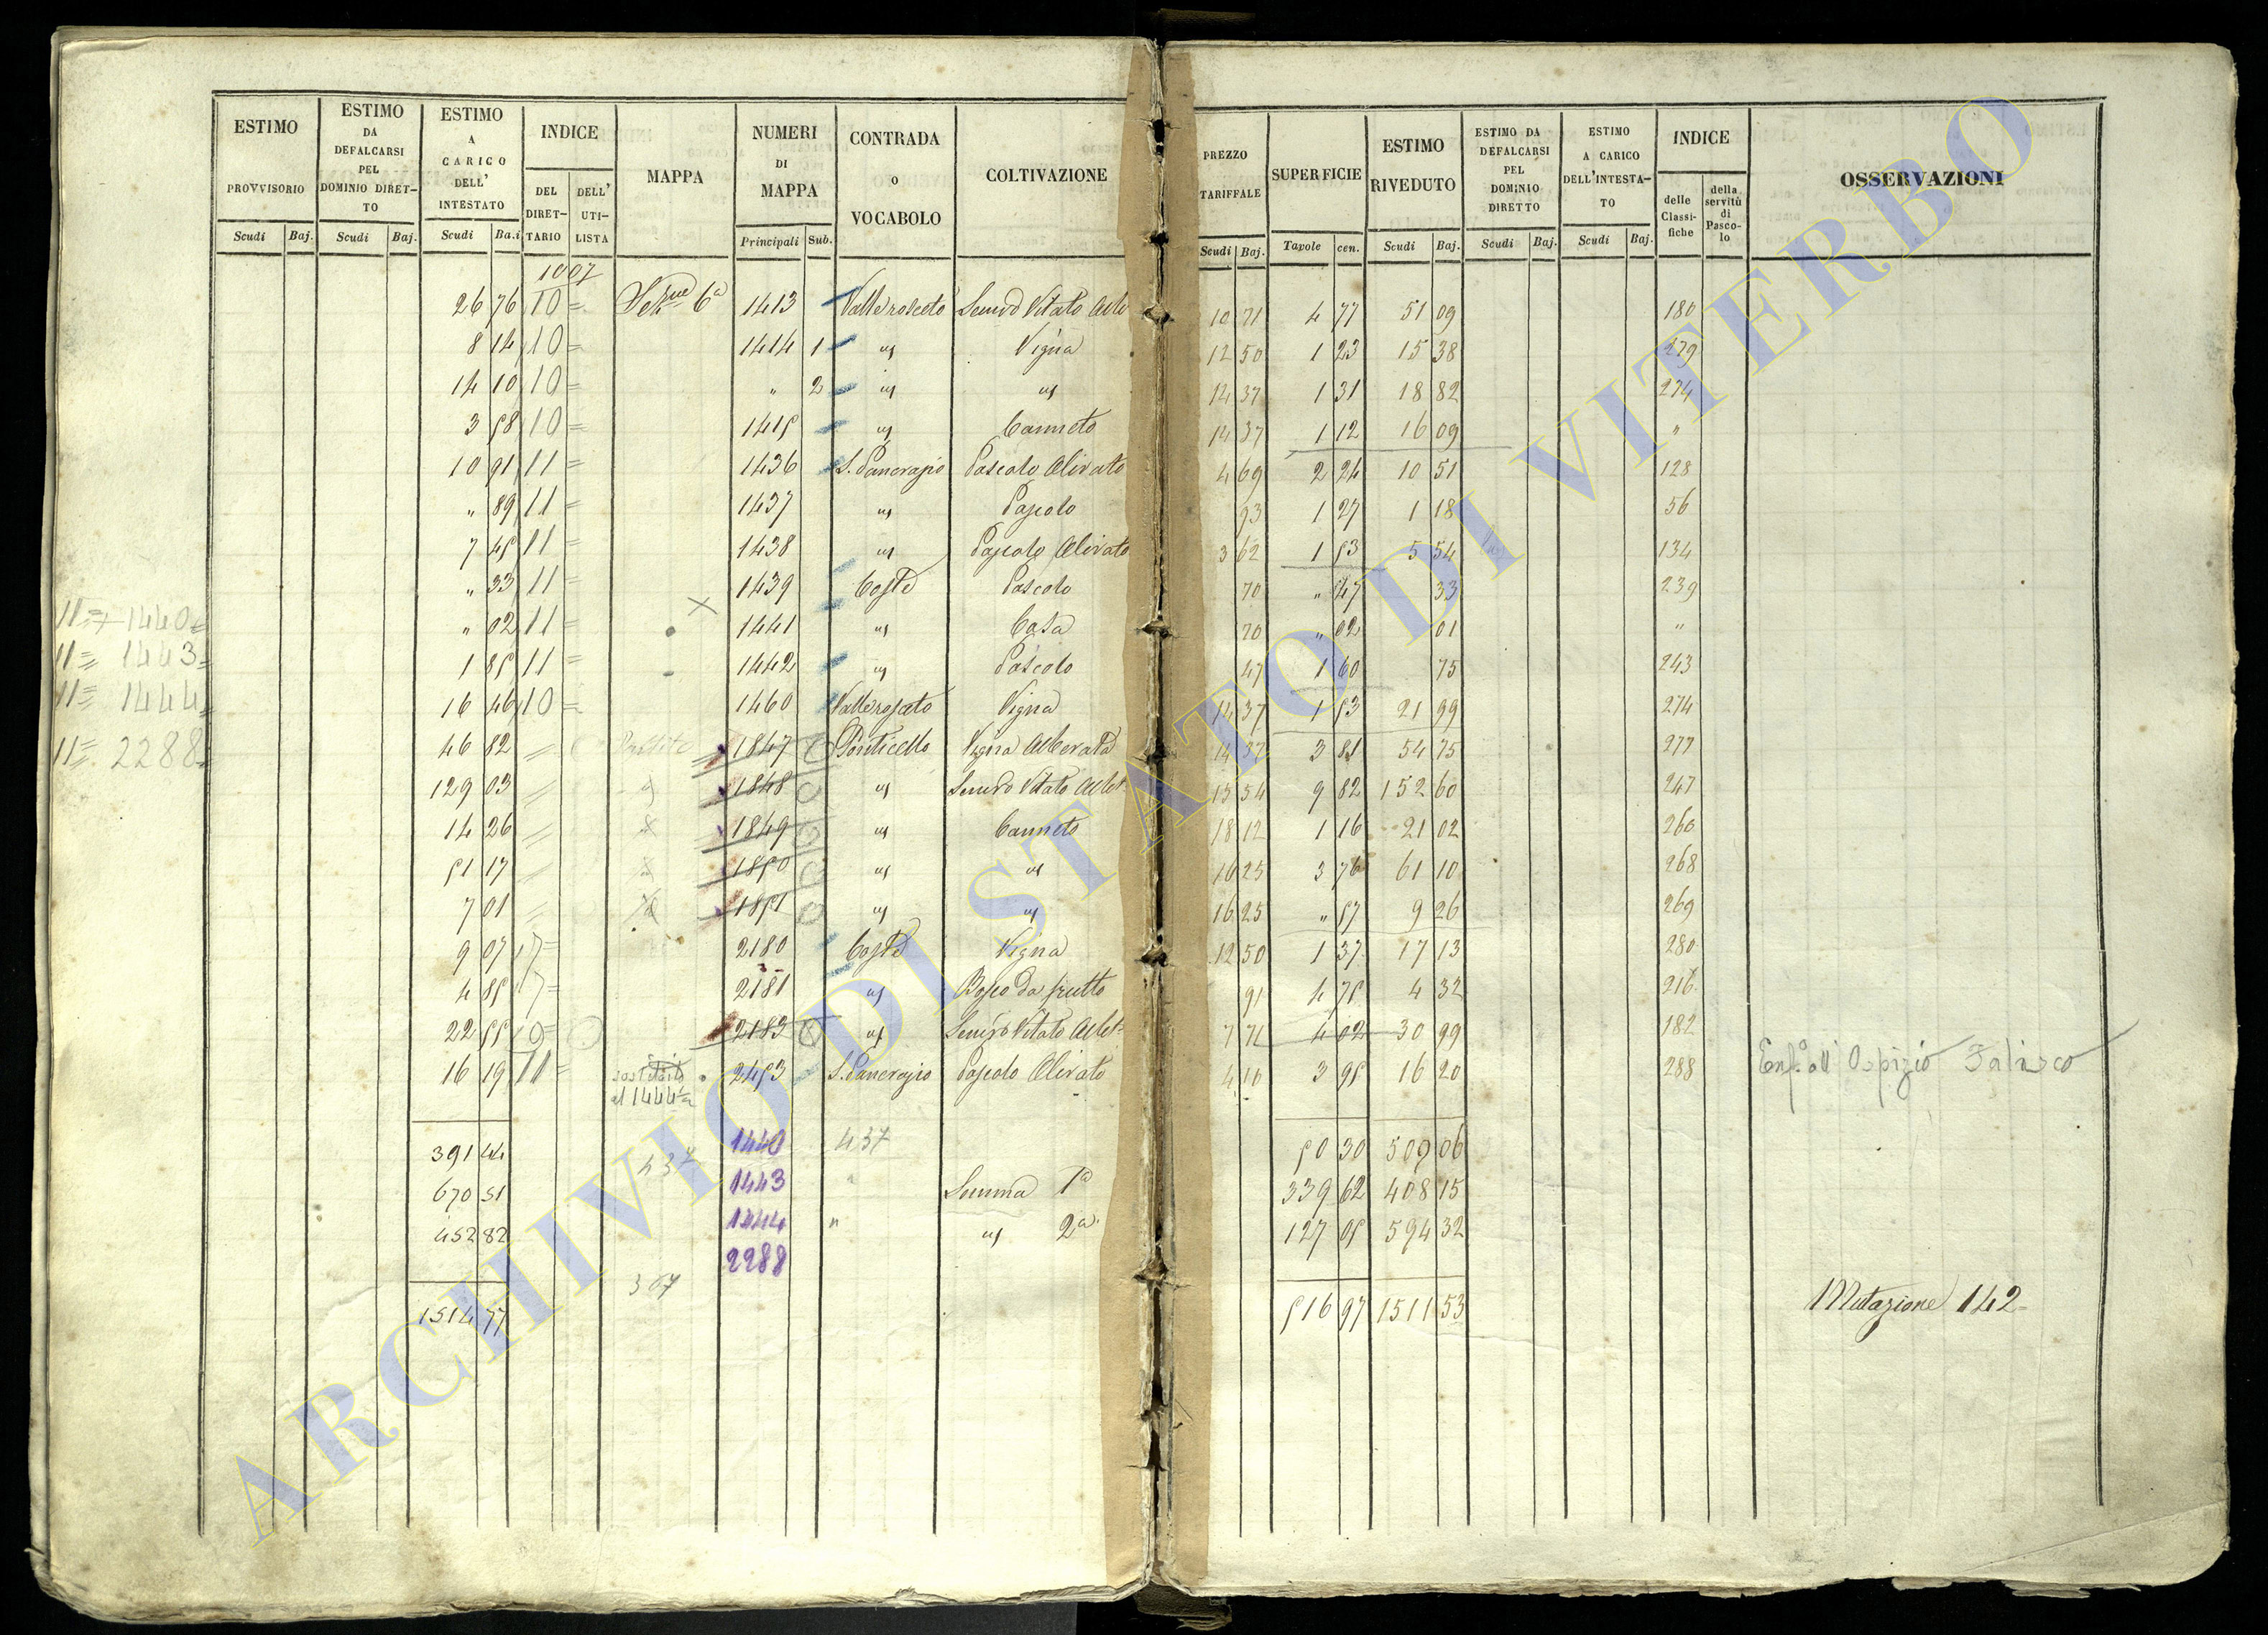 ESTIMO PROVVISORIO Scudi Baj.
ESTIMO DA DEFALCARSI PEL DOMINIO DIRET-TO Scudi Baj.
ESTIMO A CARICO DELL' INTESTATO Scudi Ba.i
INDICE DEL DIRET-TARIO DELL' UTI-LISTA
MAPPA
NUMERI DI MAPPA Principali Sub.
CONTRADA O VOCABOLO
COLTIVAZIONE
PREZZO TARIFFALE Scudi Baj.
SUPERFICIE Tavole cen.
ESTIMO RIVEDUTO Scudi Baj.
ESTIMO DA DEFALCARSI PEL DOMINIO DIRETTO Scudi Baj.
ESTIMO A CARICO DELL'INTESTA-TO Scudi Baj.
INDICE delle Classi-fiche della servitù di Pasco-lo
OSSERVAZIONI
1007
26 76 10 = 6a 1413 10 71 4 77 51 09 180
8 14 10 = 1414 1 " Vigna 12 50 1 23 15 38 279
14 10 10 = " 2 " " 14 37 1 31 18 82 274
3 58 10 = 1415 " Canneto 14 37 1 12 16 09 "
10 91 11 = 1436 S. Pancrazio Pascolo Olivato 4 69 2 24 10 51 128
" 89 11 = 1437 " Pascolo 93 1 27 1 18 56
7 45 11 = 1438 " Pascolo Olivato 3 62 1 53 5 54 134
" 33 11 = 1439 Coste Pascolo 70 " 47 33 239
11 = 1440
" 02 11 = 1441 " Casa 70 " 02 01 "
11 = 1443
1 85 11 = 1442 " Pascolo 47 1 60 75 243
11 = 1444
16 46 10 = 1460 Vallerosato Vigna 14 37 1 53 21 99 274
11 = 2288
46 82 1847 Ponticello Vigna Alberata 14 37 3 81 54 75 277
129 03 1848 " 15 54 9 82 152 60 247
14 26 1849 " Canneto 18 12 1 16 21 02 260
51 17 1850 " " 16 25 3 76 61 10 268
7 01 1851 " " 16 25 " 57 9 26 269
9 07 17 = 2180 Coste Vigna 12 50 1 37 17 13 280
4 85 17 = 2181 " Bosco da frutto 91 4 75 4 32 216
22 55 2183 " 7 71 4 02 30 99 182
16 19 11 = sostituito al 1444 2453 S. Pancrazio Pascolo Olivato 4 10 3 95 16 20 288 Enf.a all' Ospizio Falisco
391 44 437 1440 437 50 30 509 06
670 51 1443 " Summa 1a 339 62 408 15
452 82 1444 " " 2a 127 05 594 32
2288
367
1514 77 516 97 1511 53 Mutazione 142
ARCHIVIO DI STATO DI VITERBO